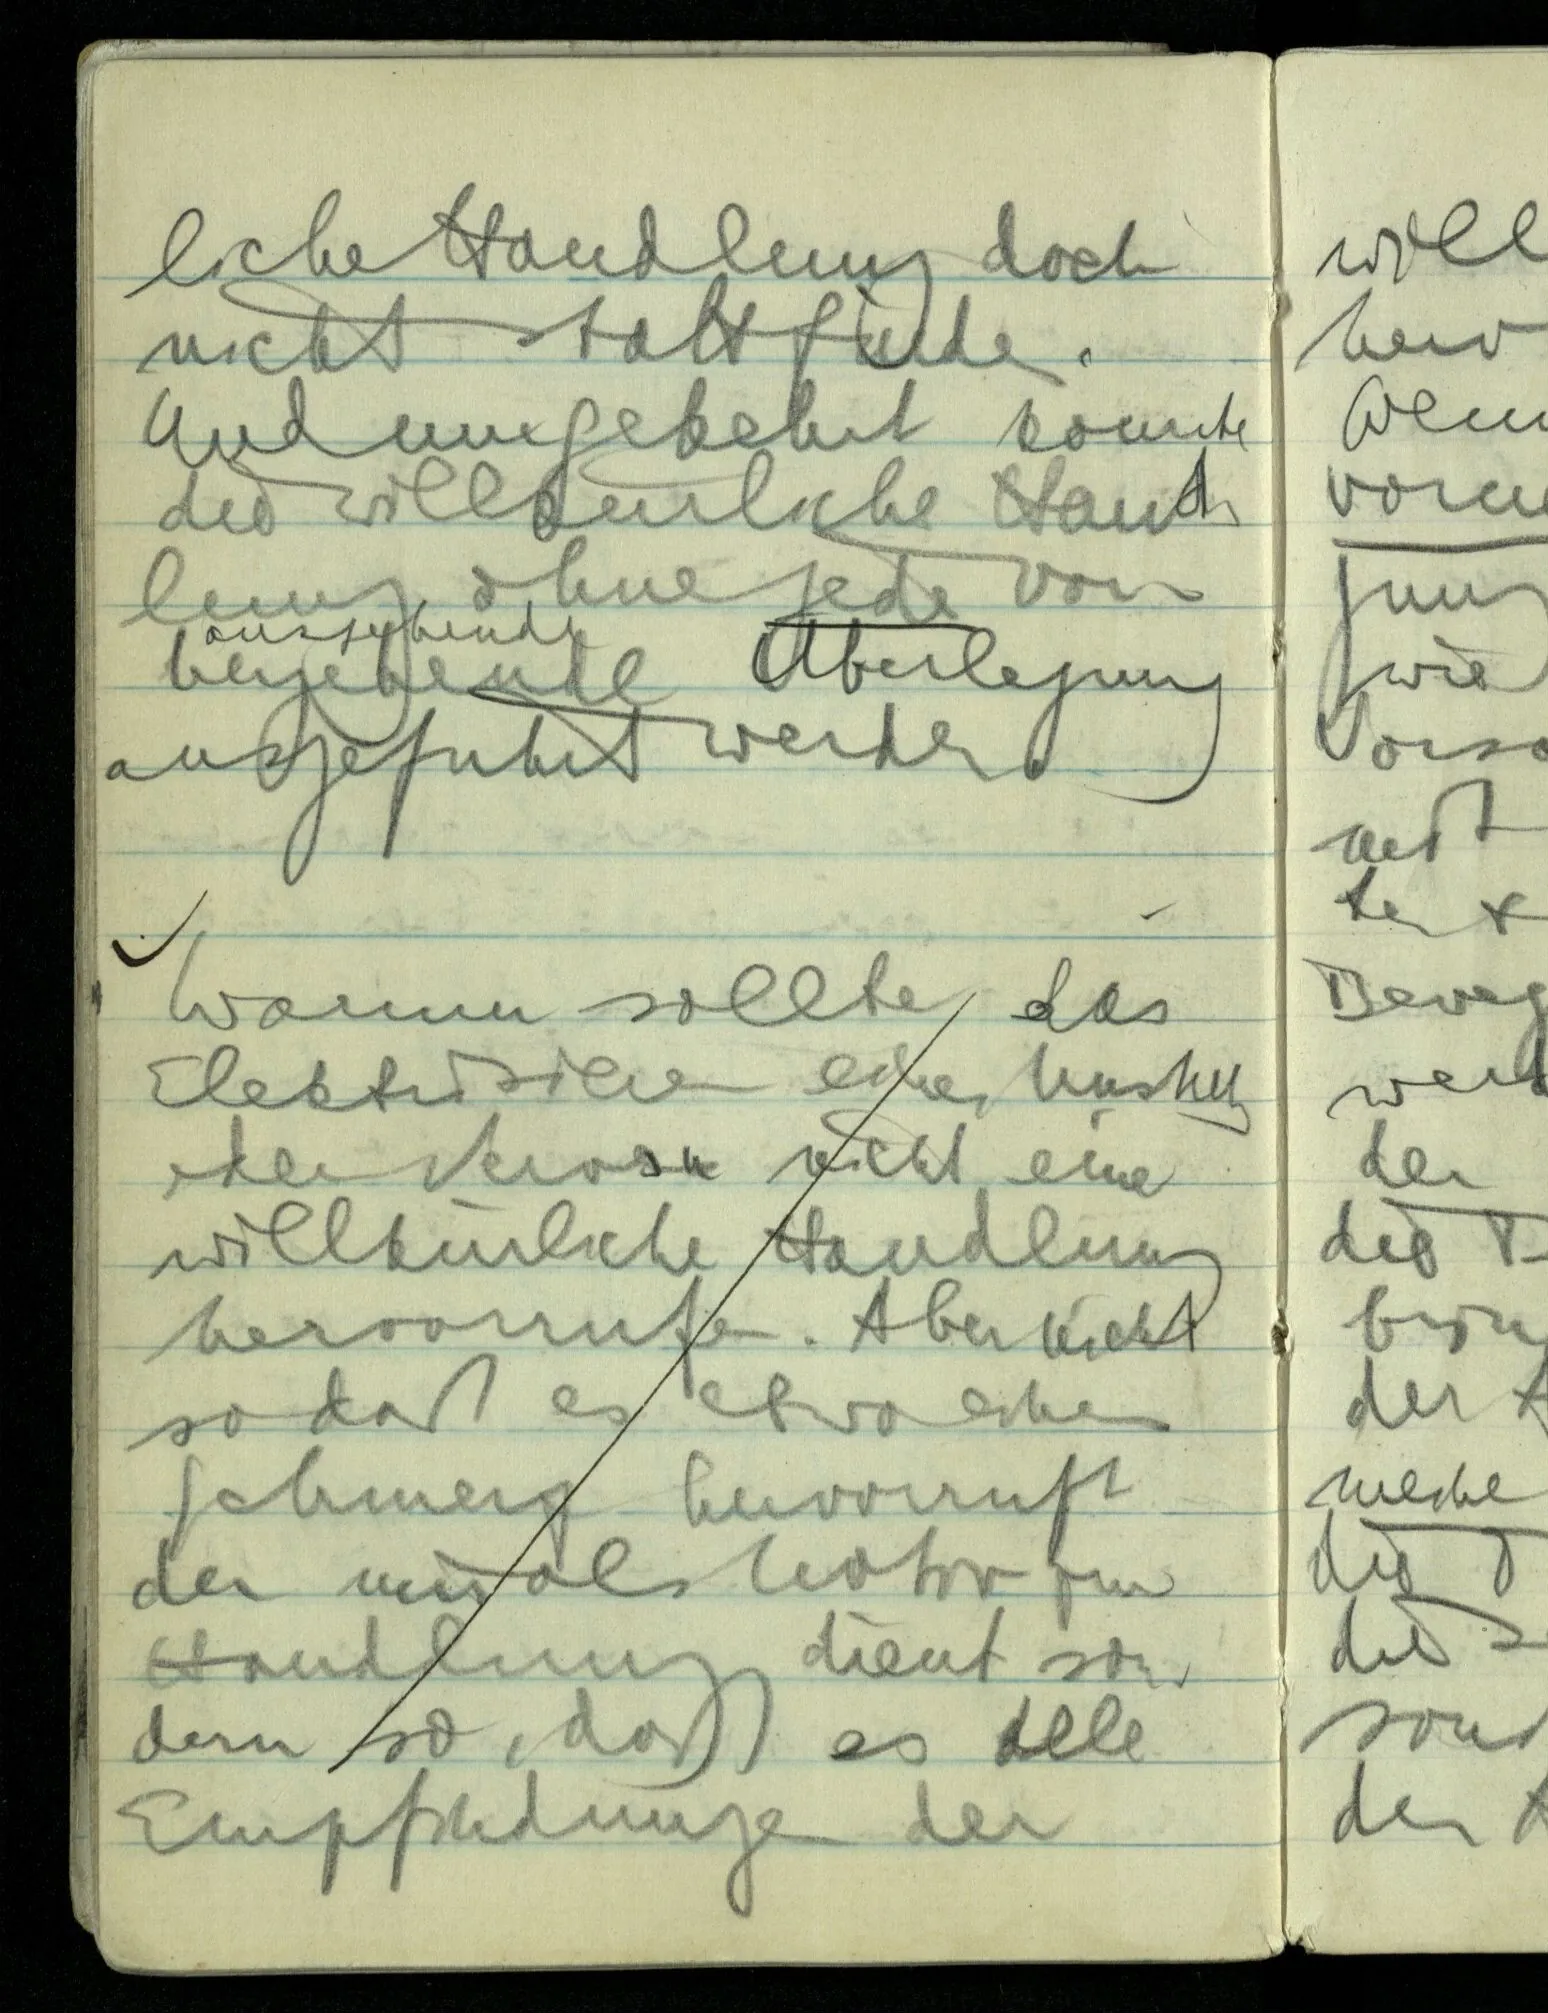 liche Handlung doch
nicht stattfinde.
Und umgekehrt konnte
die willkürliche Hand
lung ohne jede vor
ausgehende
hergehende Überlegung
ausgeführt werden.
Warum sollte das
Elektrisieren eines Muskels
oder Nerven nicht eine
willkürliche Handlung
hervorrufen. Aber nicht
so daß es etwa einen
Schmerz hervorruft
der nun als Motiv zur
Handlung dient son
dern so, daß es alle
Empfindungen der
will
wie
der
die
der
die
die
der